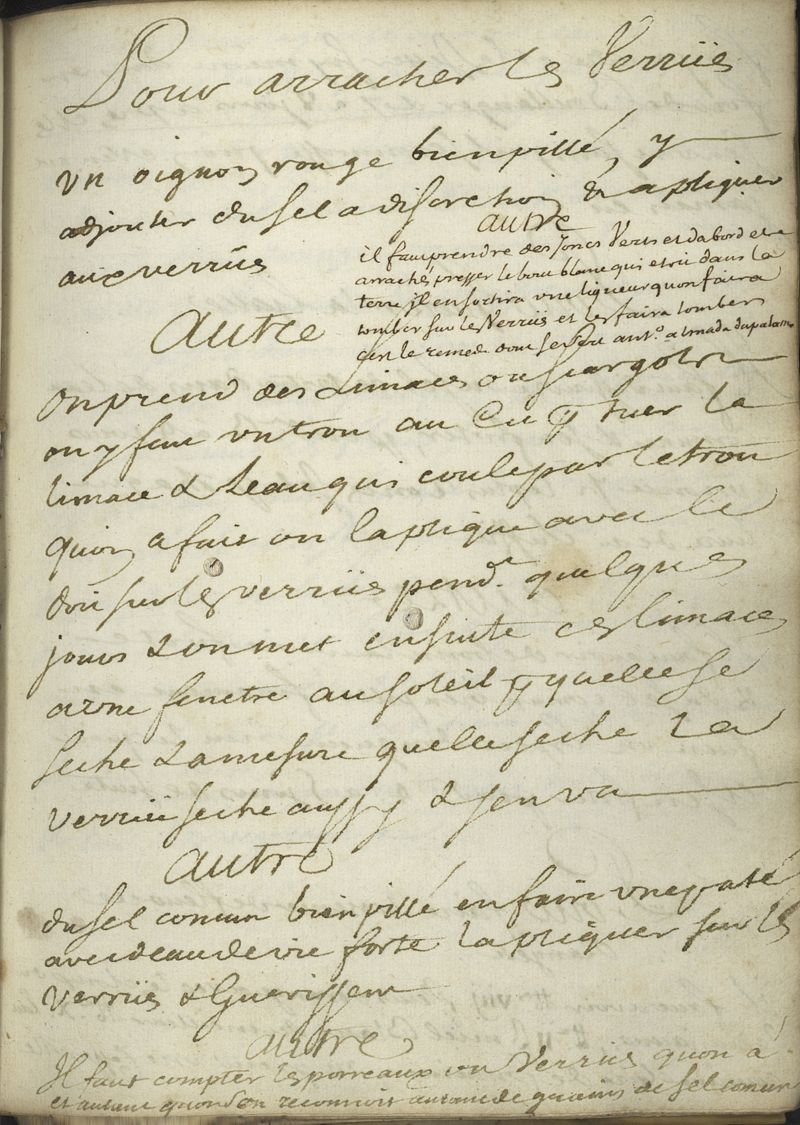 Pour arracher les Verriies
Un oignon rouge bien pillé, y
adjouter du sel a discrethion & apliquer
aux verriies
autre
il faut prendre des joncs Verts et dabord etre
arrachés presser le bout blanc qui etoit dans la
terre il en sortira une liqueur quon faira
tomber sur les Verriies et les faira tomber
cest le remede dont se servi ant.º almada
Autre
on prend des Limaces ou Escargots
on y fait un trou au Cu tuer la
limace & Leau qui coule par le trou
quon a fait on laplique avec le
doit sur les verriies pend.t quelques
jours & on met ensuite ces limaces
a une fenetre au soleil quelle se
seche & a mesure quelle seche La
verriie seche aussy & sen va
autre
du sel comun bien pillé en faire une pate
avec deau de vie forte lapliquer sur les
verriies & Guerissent
autre
Il faut compter les porreaux ou Verriies quon a
et autant quon en reconnoit autant de grains de sel comun